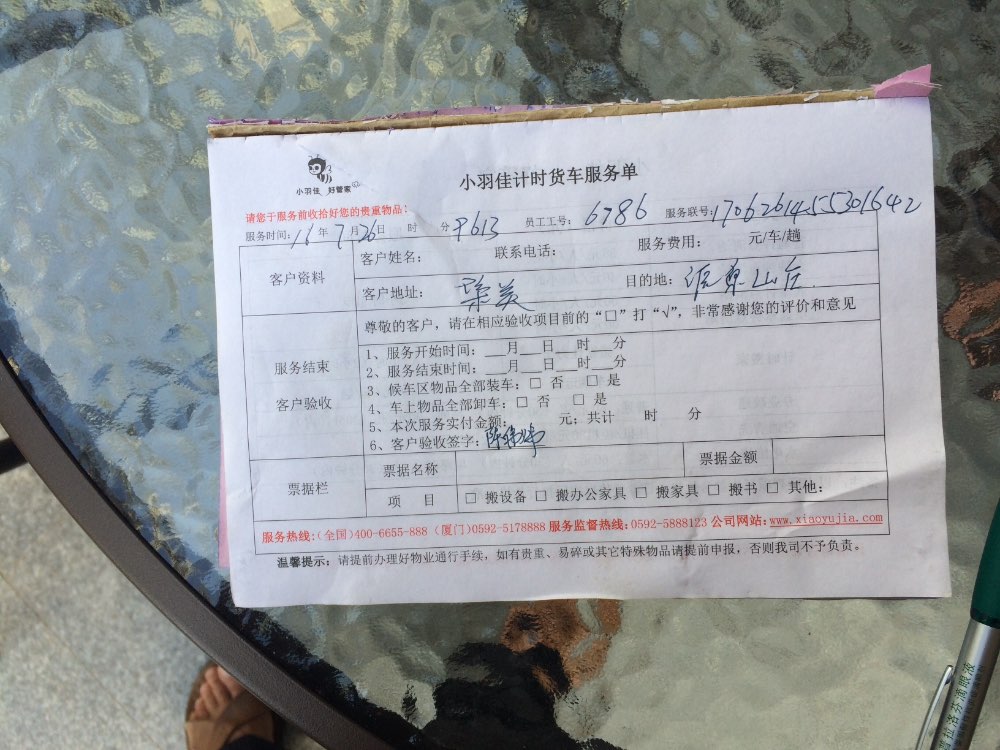 小羽佳 好管家
小羽佳计时货车服务单
请您于服务前收拾好您的贵重物品!
服务时间: 16 年 7 月 26 日 时 分 员工工号: 6786 服务联号:
客户资料
客户姓名: 联系电话: 服务费用: 元/车/趟
客户地址: 集美 目的地:
服务结束
客户验收
尊敬的客户,请在相应验收项目前的“□”打“√”,非常感谢您的评价和意见
1、服务开始时间:___月___日___时___分
2、服务结束时间:___月___日___时___分
3、候车区物品全部装车:□ 否 □ 是
4、车上物品全部卸车:□ 否 □ 是
5、本次服务实付金额: 元;共计 时 分
6、客户验收签字:
票据栏
票据名称 票据金额
项 目 □ 搬设备 □ 搬办公家具 □ 搬家具 □ 搬书 □ 其他:
服务热线:(全国)400-6655-888 (厦门)0592-5178888 服务监督热线:0592-5888123 公司网站:www.xiaoyujia.com
温馨提示:请提前办理好物业通行手续,如有贵重、易碎或其它特殊物品请提前申报,否则我司不予负责。
拉洛芬滴眼液